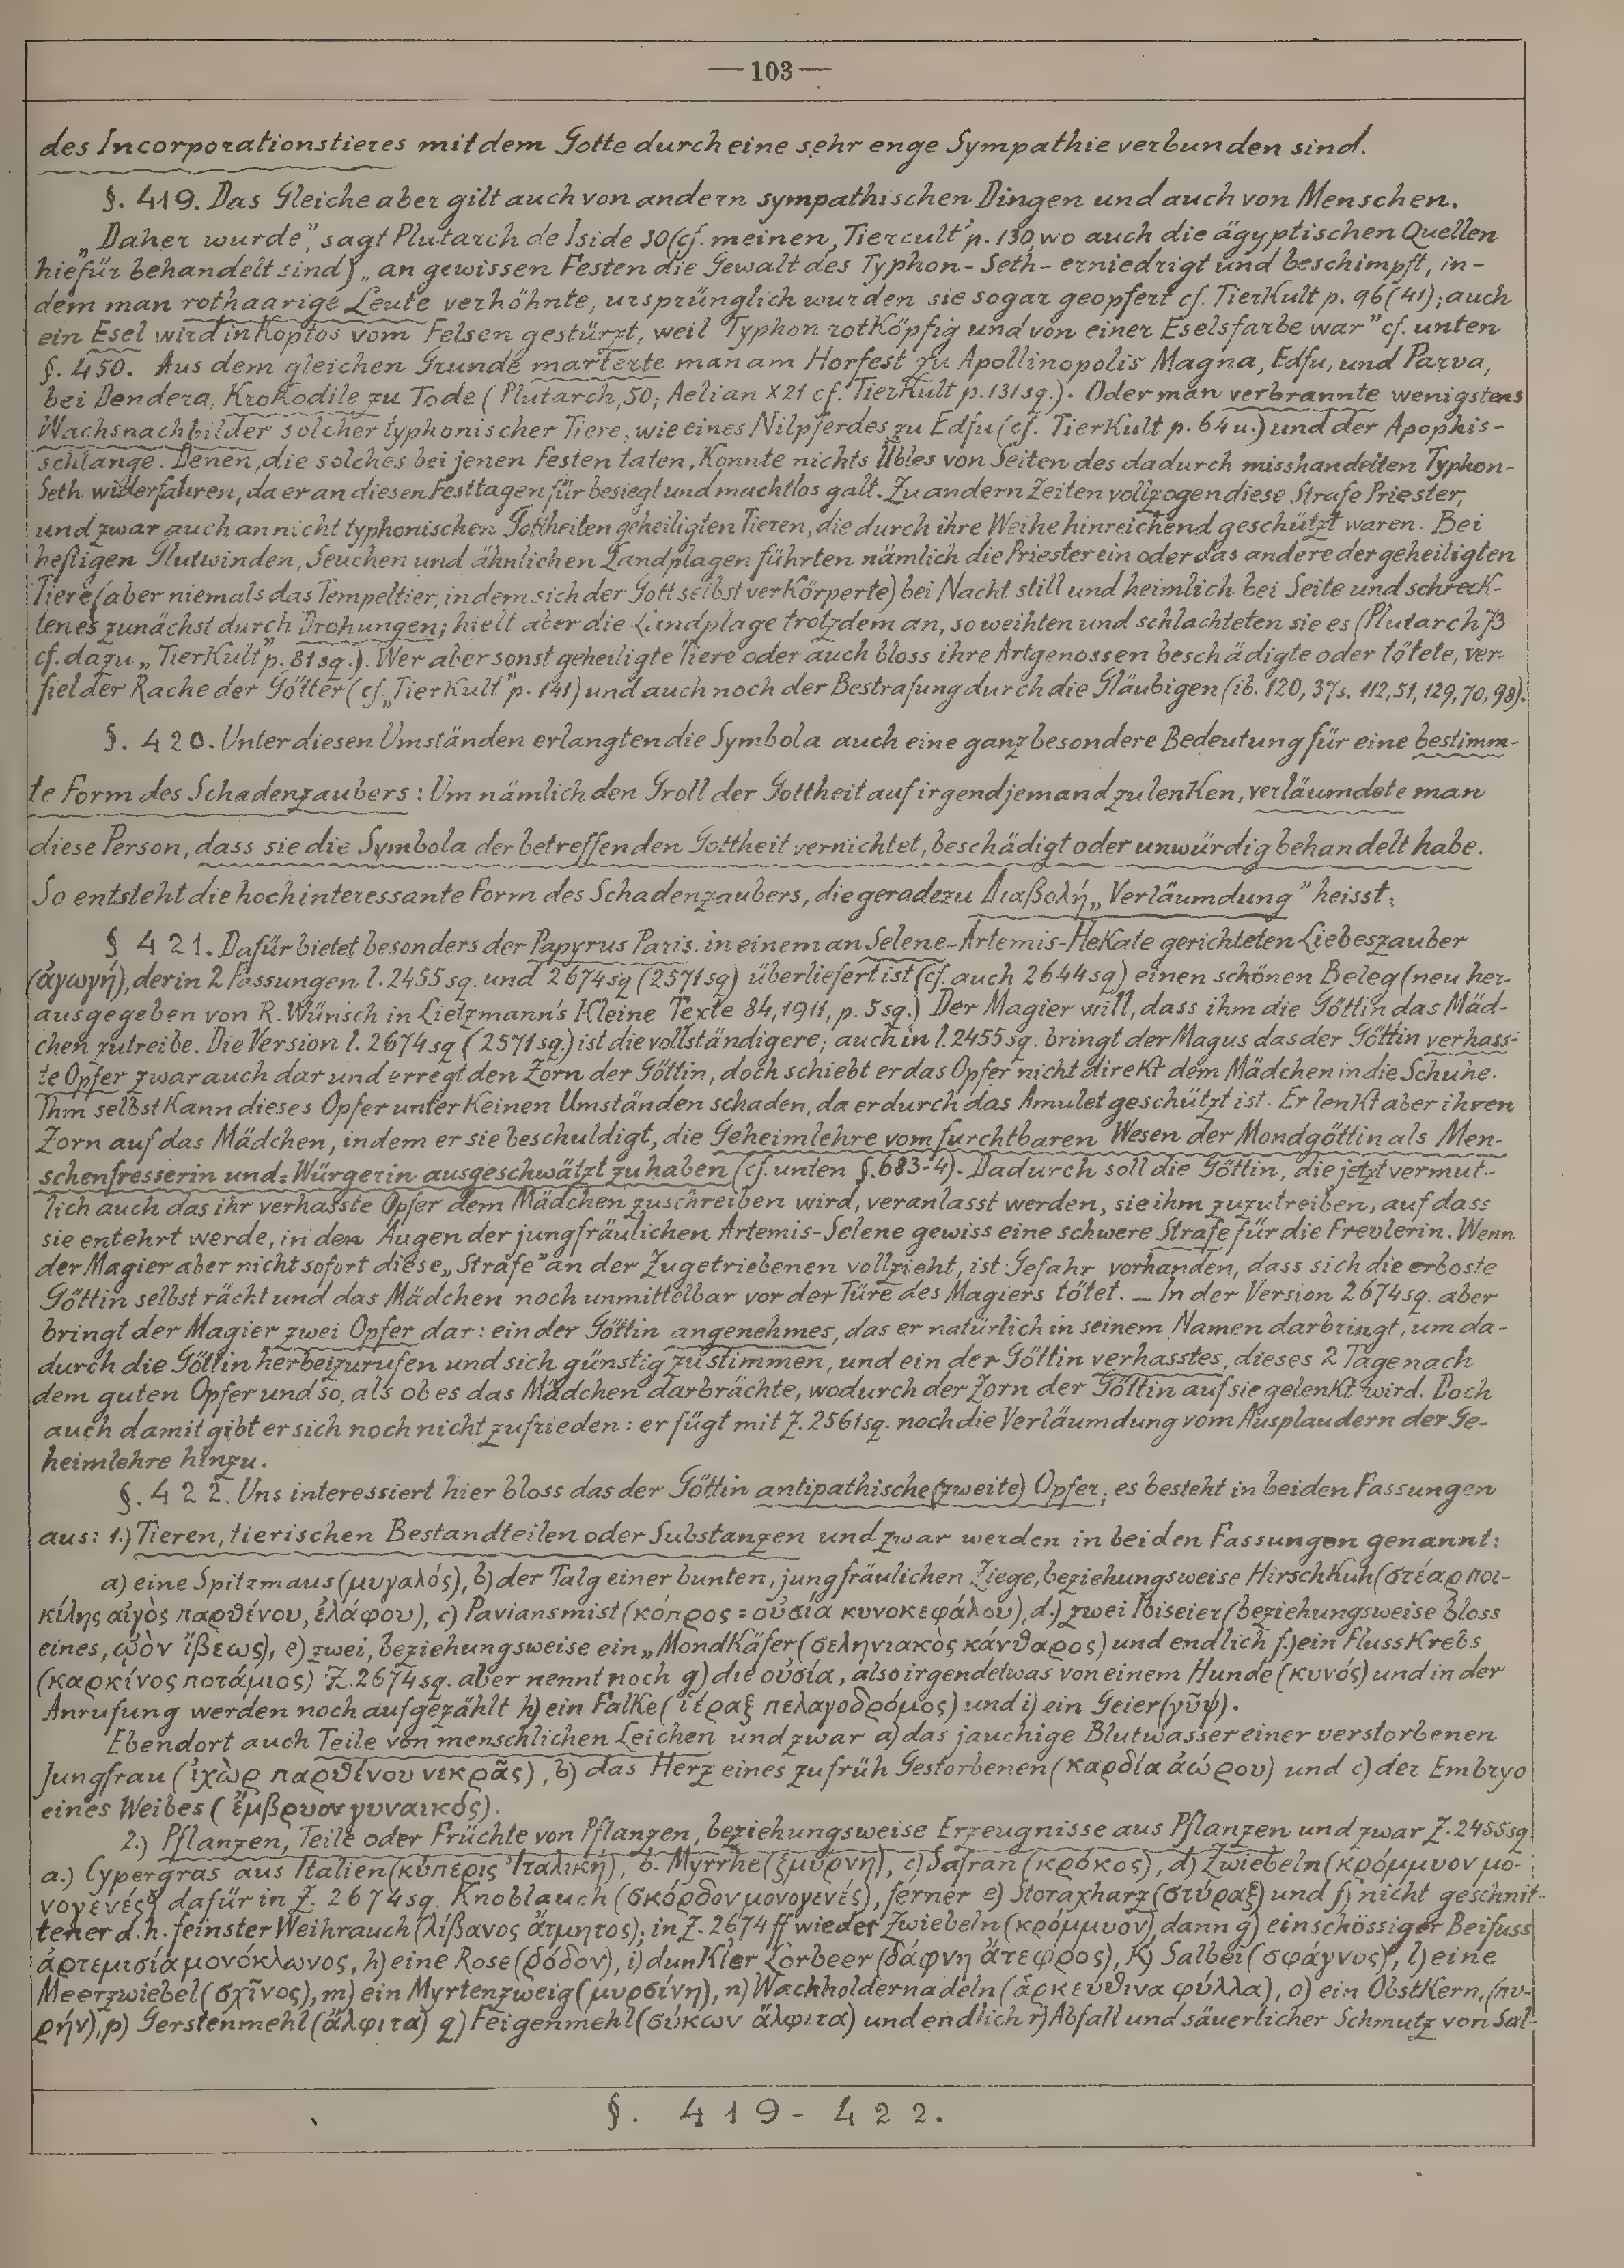 — 103 —
des Incorporationstieres mit dem Gotte durch eine sehr enge Sympathie verbunden sind.
§. 419. Das Gleiche aber gilt auch von andern sympathischen Dingen und auch von Menschen.
„Daher wurde", sagt Plutarch de Iside 30 (cf. meinen „Tiercult" p. 130, wo auch die ägyptischen Quellen
hiefür behandelt sind) „an gewissen Festen die Gewalt des Typhon-Seth- erniedrigt und beschimpft, in-
dem man rothaarige Leute verhöhnte, ursprünglich wurden sie sogar geopfert cf. TierKult p. 96 (41); auch
ein Esel wird in Koptos vom Felsen gestürzt, weil Typhon rotköpfig und von einer Eselsfarbe war" cf. unten
§. 450. Aus dem gleichen Grunde marterte man am Horfest zu Apollinopolis Magna, Edfu, und Parva,
bei Dendera, Krokodile zu Tode (Plutarch, 50; Aelian X 21 cf. TierKult p. 131 sg.). Oder man verbrannte wenigstens
Wachsnachbilder solcher typhonischer Tiere, wie eines Nilpferdes zu Edfu (cf. TierKult p. 64 u.) und der Apophis-
schlange. Denen, die solches bei jenen Festen taten, konnte nichts Übles von Seiten des dadurch misshandelten Typhon-
Seth widerfahren, da er an diesen Festtagen für besiegt und machtlos galt. Zu andern Zeiten vollzogen diese Strafe Priester,
und zwar auch an nicht typhonischen Gottheiten geheiligten Tieren, die durch ihre Weihe hinreichend geschützt waren. Bei
heftigen Glutwinden, Seuchen und ähnlichen Landplagen führten nämlich die Priester ein oder das andere der geheiligten
Tiere (aber niemals das Tempeltier, in dem sich der Gott selbst verkörperte) bei Nacht still und heimlich bei Seite und schreck-
ten es zunächst durch Drohungen; hielt aber die Landplage trotzdem an, so weihten und schlachteten sie es (Plutarch 73
cf. dazu „TierKult" p. 81 sg.). Wer aber sonst geheiligte Tiere oder auch bloss ihre Artgenossen beschädigte oder tötete, ver-
fiel der Rache der Götter (cf. „TierKult" p. 141) und auch noch der Bestrafung durch die Gläubigen (ib. 120, 37s. 112, 51, 129, 70, 98).
§. 420. Unter diesen Umständen erlangten die Symbola auch eine ganz besondere Bedeutung für eine bestimm-
te Form des Schadenzaubers: Um nämlich den Groll der Gottheit auf irgendjemand zu lenken, verläumdete man
diese Person, dass sie die Symbola der betreffenden Gottheit vernichtet, beschädigt oder unwürdig behandelt habe.
So entsteht die hochinteressante Form des Schadenzaubers, die geradezu Διαβολή „Verläumdung" heisst:
§ 421. Dafür bietet besonders der Papyrus Paris. in einem an Selene-Artemis-Hekate gerichteten Liebeszauber
(ἀγωγή), der in 2 Fassungen l. 2455 sg. und 2674 sg (2571 sg) überliefert ist (cf. auch 2644 sg) einen schönen Beleg (neu her-
ausgegeben von R. Wünsch in Lietzmann's Kleine Texte 84, 1911, p. 5 sg.) Der Magier will, dass ihm die Göttin das Mäd-
chen zutreibe. Die Version l. 2674 sg (2571 sg.) ist die vollständigere; auch in l. 2455 sg. bringt der Magus das der Göttin verhass-
te Opfer zwar auch dar und erregt den Zorn der Göttin, doch schiebt er das Opfer nicht direkt dem Mädchen in die Schuhe.
Ihm selbst kann dieses Opfer unter keinen Umständen schaden, da er durch das Amulet geschützt ist. Er lenkt aber ihren
Zorn auf das Mädchen, indem er sie beschuldigt, die Geheimlehre vom furchtbaren Wesen der Mondgöttin als Men-
schenfresserin und =Würgerin ausgeschwätzt zu haben (cf. unten §. 683-4). Dadurch soll die Göttin, die jetzt vermut-
lich auch das ihr verhasste Opfer dem Mädchen zuschreiben wird, veranlasst werden, sie ihm zuzutreiben, auf dass
sie entehrt werde, in den Augen der jungfräulichen Artemis-Selene gewiss eine schwere Strafe für die Frevlerin. Wenn
der Magier aber nicht sofort diese „Strafe" an der Zugetriebenen vollzieht, ist Gefahr vorhanden, dass sich die erboste
Göttin selbst rächt und das Mädchen noch unmittelbar vor der Türe des Magiers tötet. — In der Version 2674 sg. aber
bringt der Magier zwei Opfer dar: ein der Göttin angenehmes, das er natürlich in seinem Namen darbringt, um da-
durch die Göttin herbeizurufen und sich günstig zu stimmen, und ein der Göttin verhasstes, dieses 2 Tage nach
dem guten Opfer und so, als ob es das Mädchen darbrächte, wodurch der Zorn der Göttin auf sie gelenkt wird. Doch
auch damit gibt er sich noch nicht zufrieden: er fügt mit Z. 2561 sg. noch die Verläumdung vom Ausplaudern der Ge-
heimlehre hinzu.
§. 422. Uns interessiert hier bloss das der Göttin antipathische (zweite) Opfer; es besteht in beiden Fassungen
aus: 1.) Tieren, tierischen Bestandteilen oder Substanzen und zwar werden in beiden Fassungen genannt:
a) eine Spitzmaus (μυγαλός), b) der Talg einer bunten, jungfräulichen Ziege, beziehungsweise Hirschkuh (στέαρ ποι-
κίλης αἰγὸς παρθένου, ἐλάφου), c) Paviansmist (κόπρος = οὐσία κυνοκεφάλου), d.) zwei Ibiseier (beziehungsweise bloss
eines, ᾠὸν ἴβεως), e) zwei, beziehungsweise ein „Mondkäfer (σεληνιακὸς κάνθαρος) und endlich f.) ein Flusskrebs
(καρκίνος ποτάμιος) Z. 2674 sg. aber nennt noch g) die οὐσία, also irgendetwas von einem Hunde (κυνός) und in der
Anrufung werden noch aufgezählt h) ein Falke (ἱέραξ πελαγοδρόμος) und i) ein Geier (γῦψ).
Ebendort auch Teile von menschlichen Leichen und zwar a) das jauchige Blutwasser einer verstorbenen
Jungfrau (ἰχὼρ παρθένου νεκρᾶς), b) das Herz eines zu früh Gestorbenen (καρδία ἀώρου) und c) der Embryo
eines Weibes (ἔμβρυον γυναικός).
2.) Pflanzen, Teile oder Früchte von Pflanzen, beziehungsweise Erzeugnisse aus Pflanzen und zwar Z. 2455 sg
a.) Cypergras aus Italien (κύπερις Ἰταλική), b. Myrrhe (ζμύρνη), c) Safran (κρόκος), d) Zwiebeln (κρόμμυον μο-
νογενές) dafür in Z. 2674 sg. Knoblauch (σκόρδον μονογενές), ferner e) Storaxharz (στύραξ) und f) nicht geschnit-
tener d.h. feinster Weihrauch (λίβανος ἄτμητος); in Z. 2674 ff wieder Zwiebeln (κρόμμυον), dann g) einschössiger Beifuss
ἀρτεμισία μονόκλωνος, h) eine Rose (ῥόδον), i) dunkler Lorbeer (δάφνη ἄτεφρος), k) Salbei (σφάγνος), l) eine
Meerzwiebel (σχῖνος), m) ein Myrtenzweig (μυρσίνη), n) Wachholdernadeln (ἀρκεύθινα φύλλα), o) ein Obstkern, (πυ-
ρήν), p) Gerstenmehl (ἄλφιτα) q) Feigenmehl (σύκων ἄλφιτα) und endlich r) Abfall und säuerlicher Schmutz von Sal-
§. 419-422.